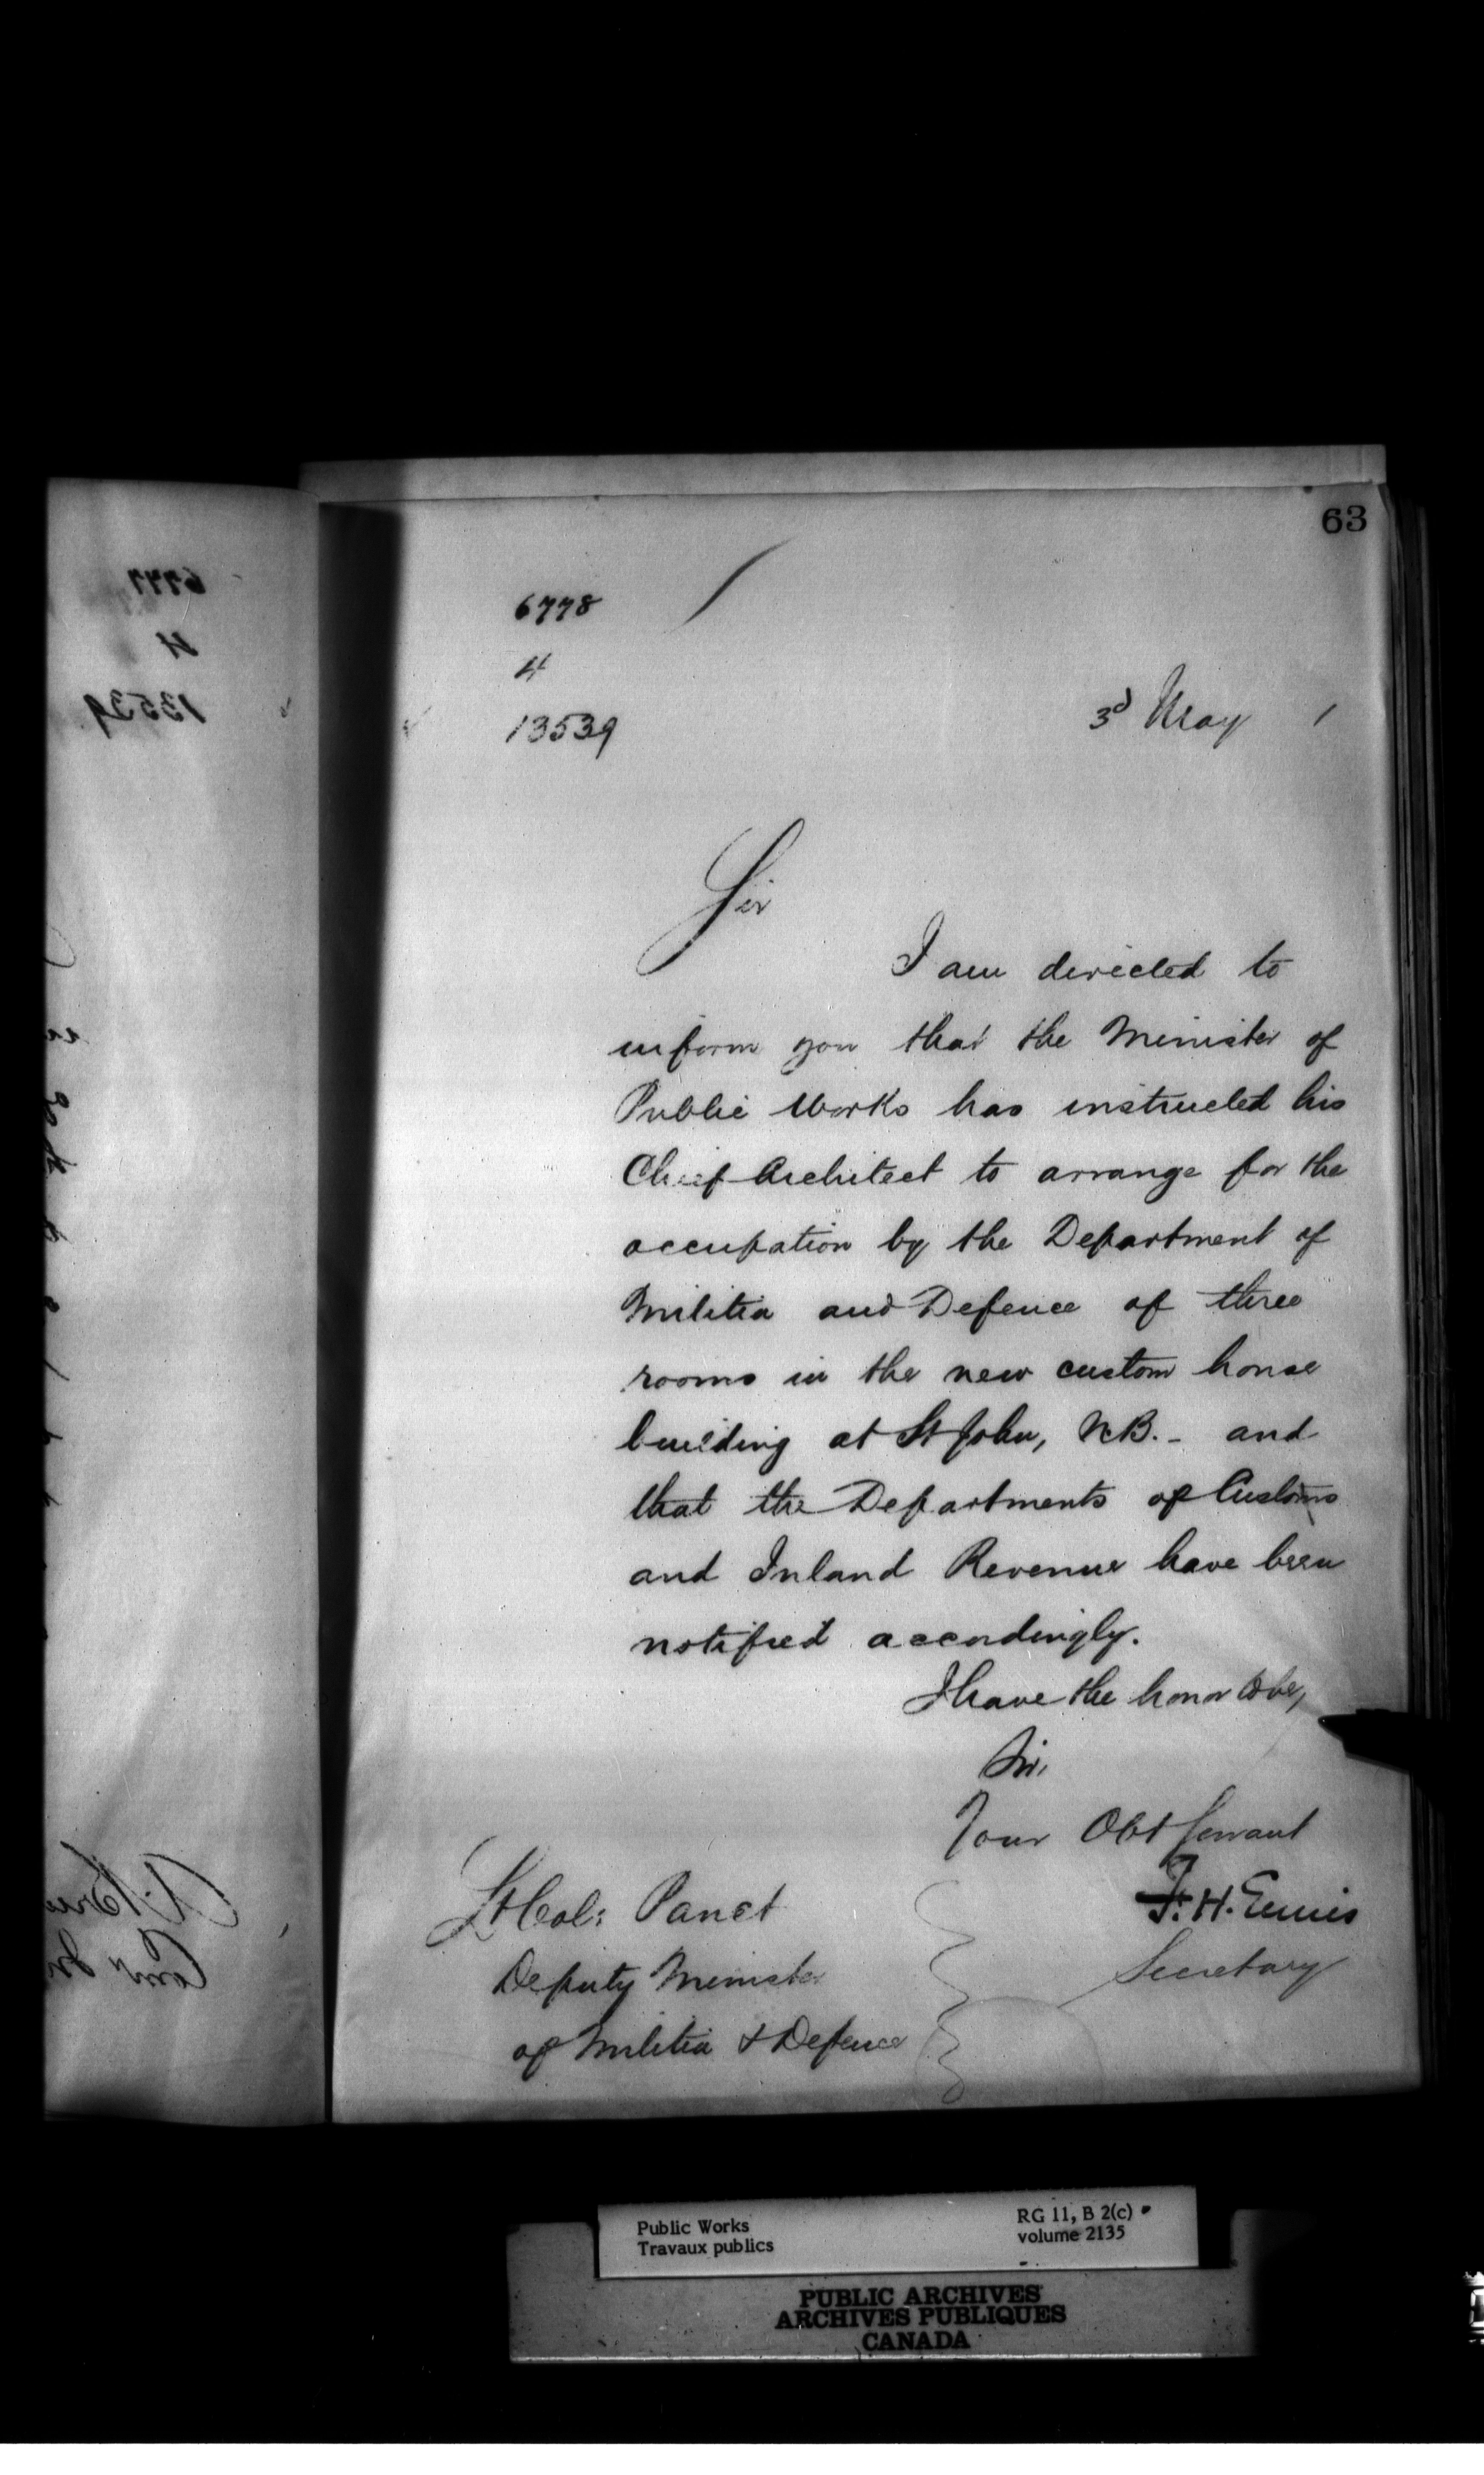 63
6778
4
13539
3d May 1
Sir
I am directed to
inform you that the Minister of
Public Works has instructed his
Chief Architect to arrange for the
occupation by the Department of
Militia and Defence of three
rooms in the new custom house
building at St John, N.B. - and
that the Departments of Customs
and Inland Revenue have been
notified accordingly.
I have the honor to be,
Sir,
Your Obt Servant
F. H. Ennis
Secretary
Lt Col: Panet
Deputy Minister
of Militia & Defence
6777
4
13539
Public Works
Travaux publics
RG 11, B 2(c)
volume 2135
PUBLIC ARCHIVES
ARCHIVES PUBLIQUES
CANADA